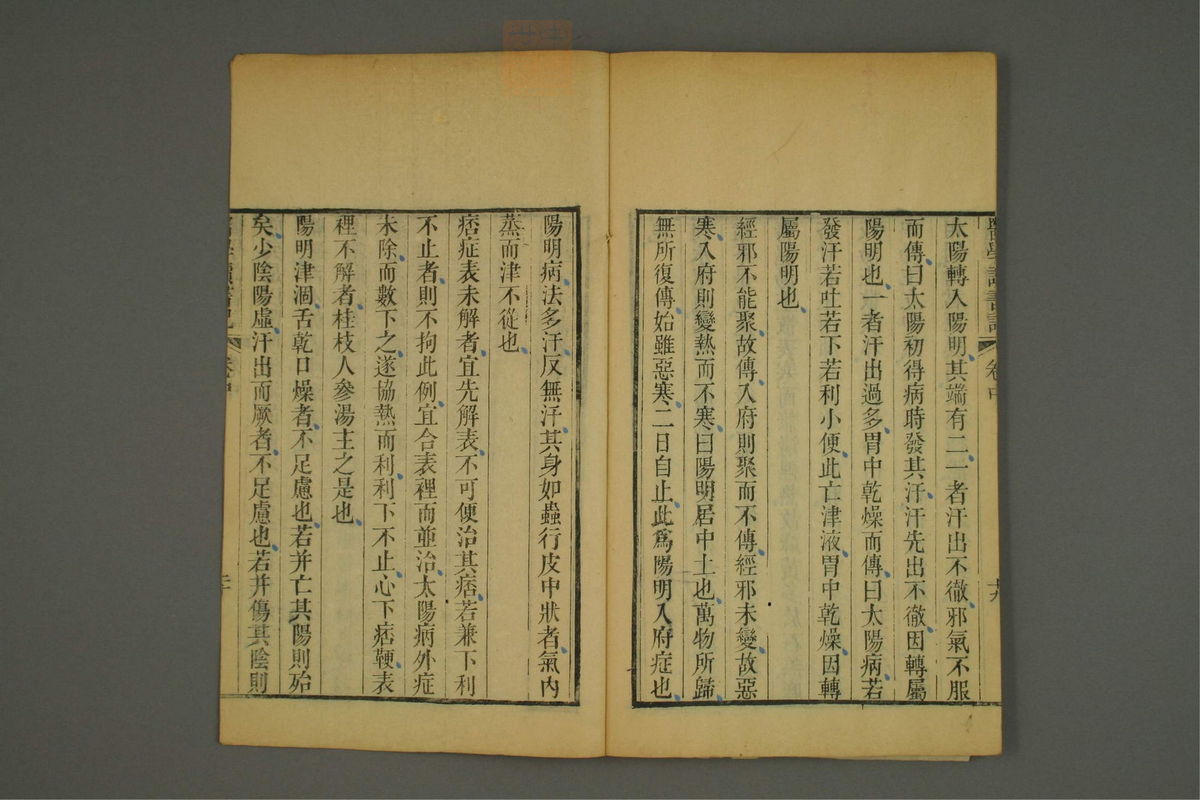 醫學讀書記 卷中 十九
太陽轉入陽明其端有二一者汗出不徹邪氣不服
而傳曰太陽初得病時發其汗汗先出不徹因轉屬
陽明也一者汗出過多胃中乾燥而傳曰太陽病若
發汗若吐若下若利小便此亡津液胃中乾燥因轉
屬陽明也
經邪不能聚故傳入府則聚而不傳經邪未變故惡
寒入府則變熱而不寒曰陽明居中土也萬物所歸
無所復傳始雖惡寒二日自止此爲陽明入府症也
陽明病法多汗反無汗其身如蟲行皮中狀者氣內
蒸而津不從也
痞症表未解者宜先解表不可便治其痞若兼下利
不止者則不拘此例宜合表裡而並治太陽病外症
未除而數下之遂協熱而利利下不止心下痞鞕表
裡不解者桂枝人參湯主之是也
陽明津涸舌乾口燥者不足慮也若并亡其陽則殆
矣少陰陽虛汗出而厥者不足慮也若并傷其陰則
醫學讀書記 卷中 二十